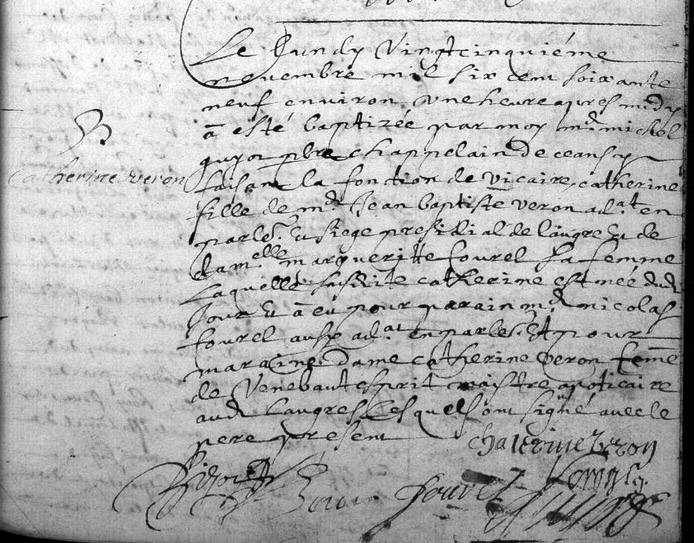 Le Lundy Vingtcinquiéme
novembre mil six cent soixante
neuf environ vne heure apres midy
à esté baptizée par moy mr michel
guyot pbre chappelain de ceans
faisant la fonction de vicaire, catherine
fille de mr Jean baptiste veron adat en
parlet et siege presidial de langre et de
damelle margueritte fourel sa femme
Laquelle susdite catherine est née dud
Jour et à eu pour parain mr nicolas
fourel aussy adat en parlet. Et pour
maraine dame catherine veron feme
de Venebaut esprit maistre apoticaire
aud Langres Lesquels ont signé avec le
pere present
catherine veron
chaterine veron
veron fourel